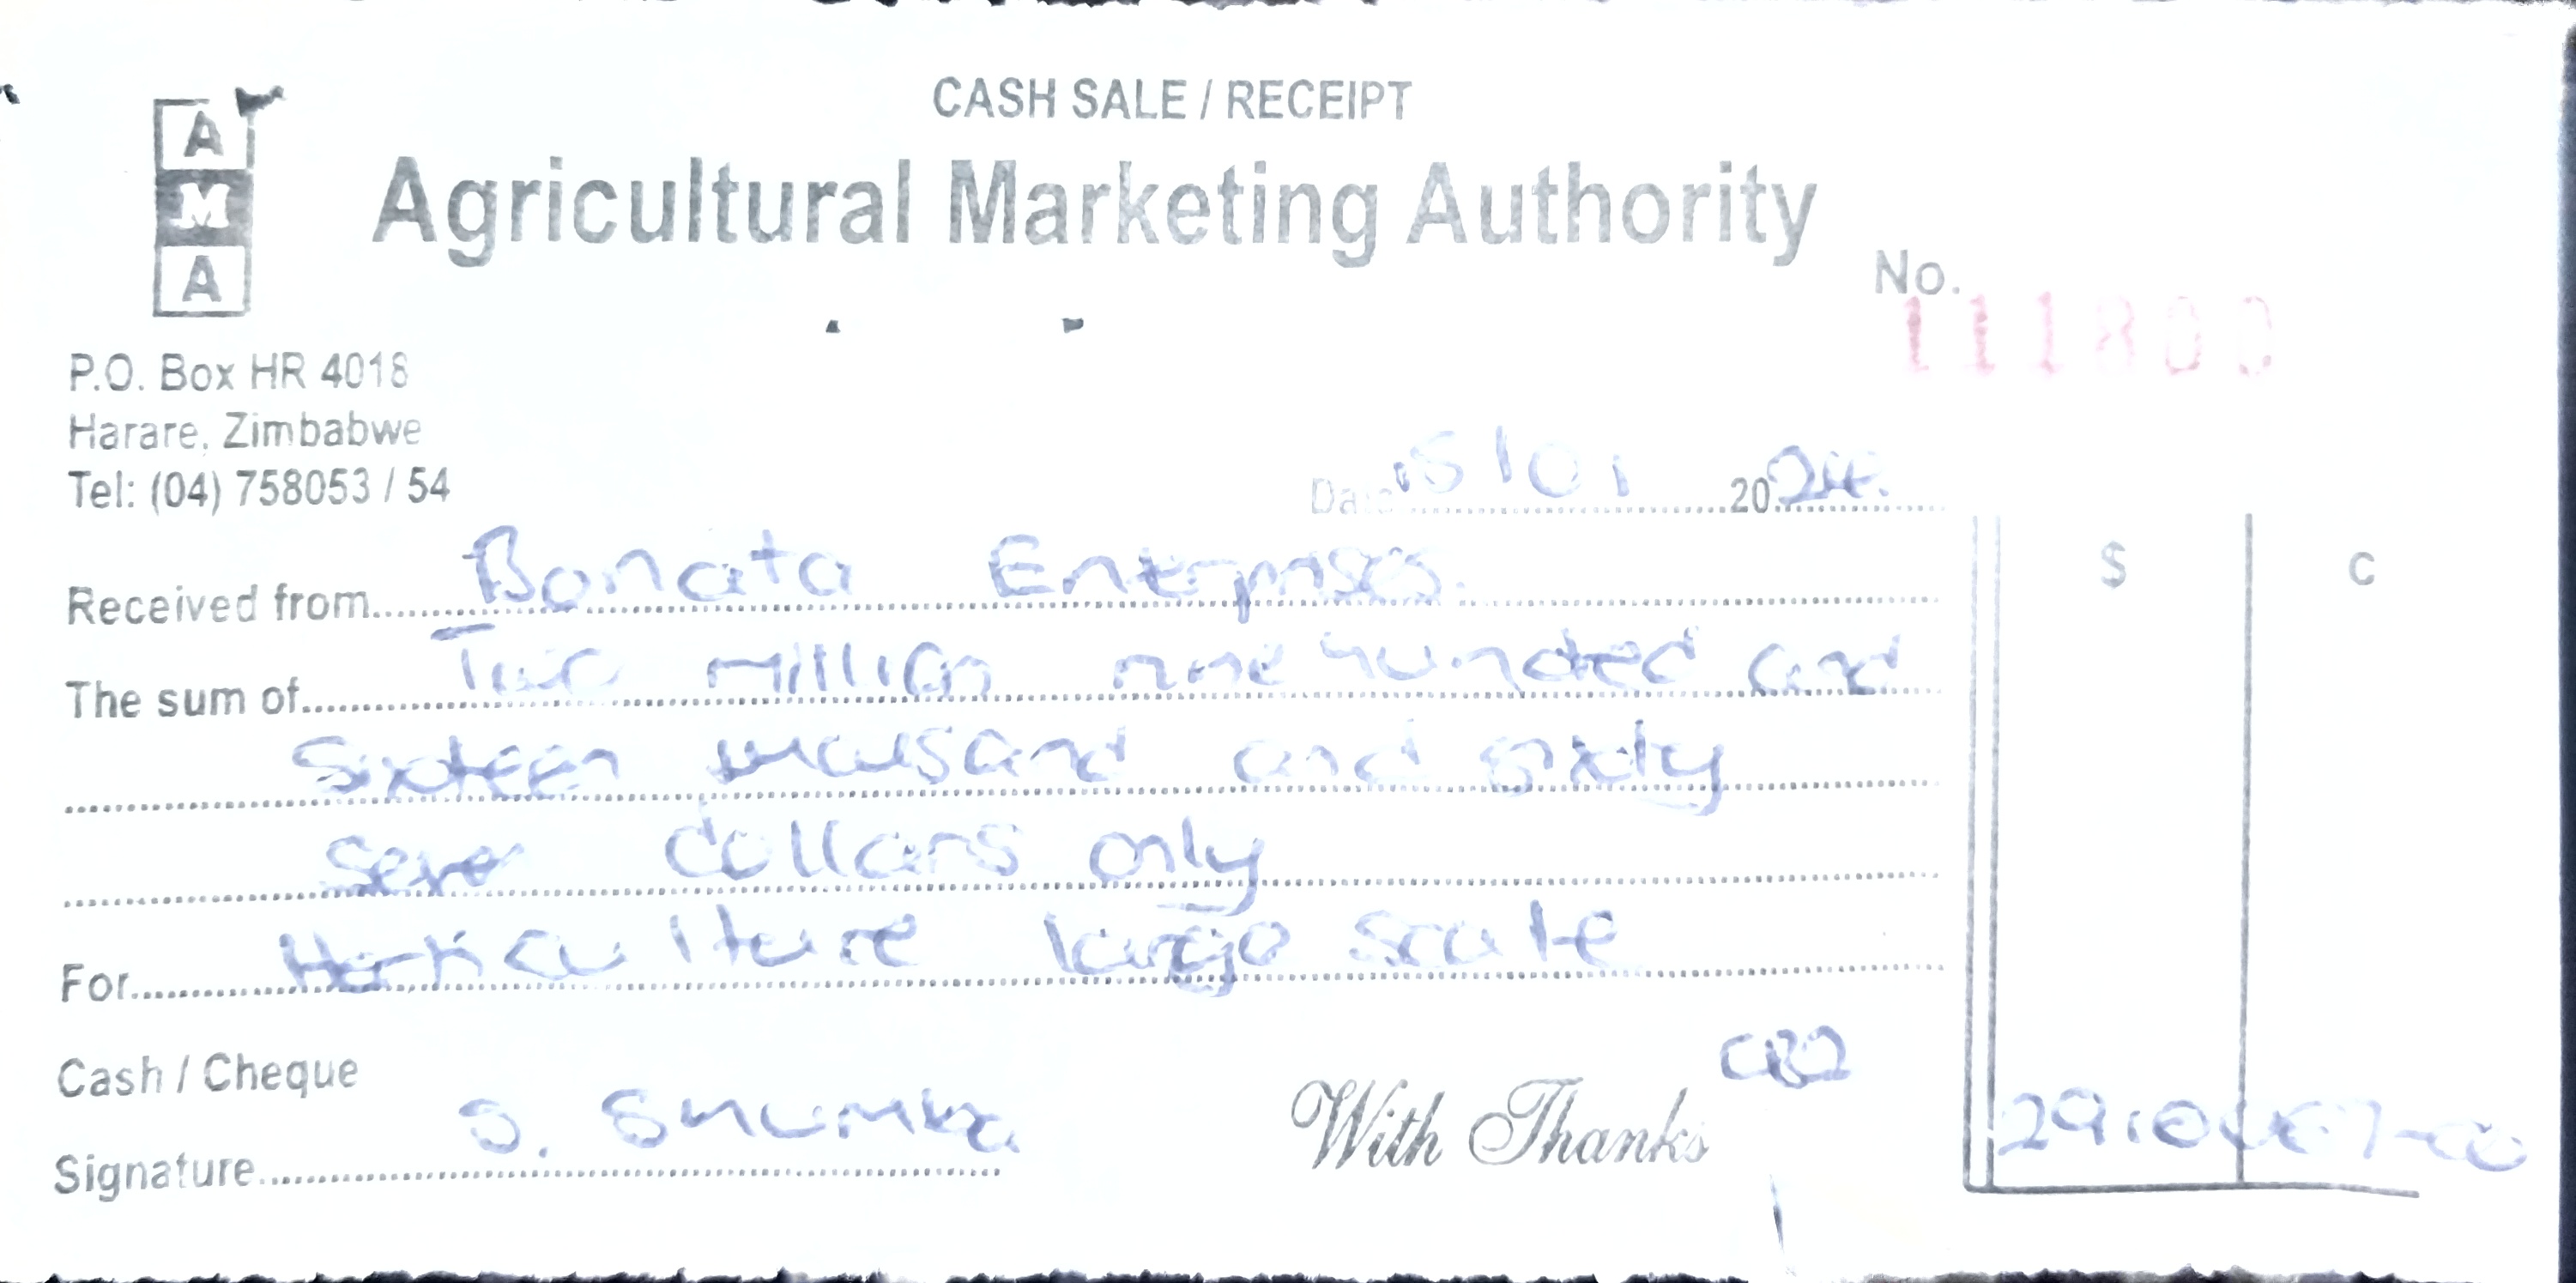 CASH SALE / RECEIPT
A
M
A
Agricultural Marketing Authority
No.
111800
P.O. Box HR 4018
Harare, Zimbabwe
Tel: (04) 758053 / 54
Date 15/01 2024.
$ C
Received from Bonata Enterprises.
The sum of Two Million nine hundred and
Sixteen thousand and sixty
seven dollars only
For Horticulture large scale
Cash / Cheque
With Thanks
Signature S. Shumba